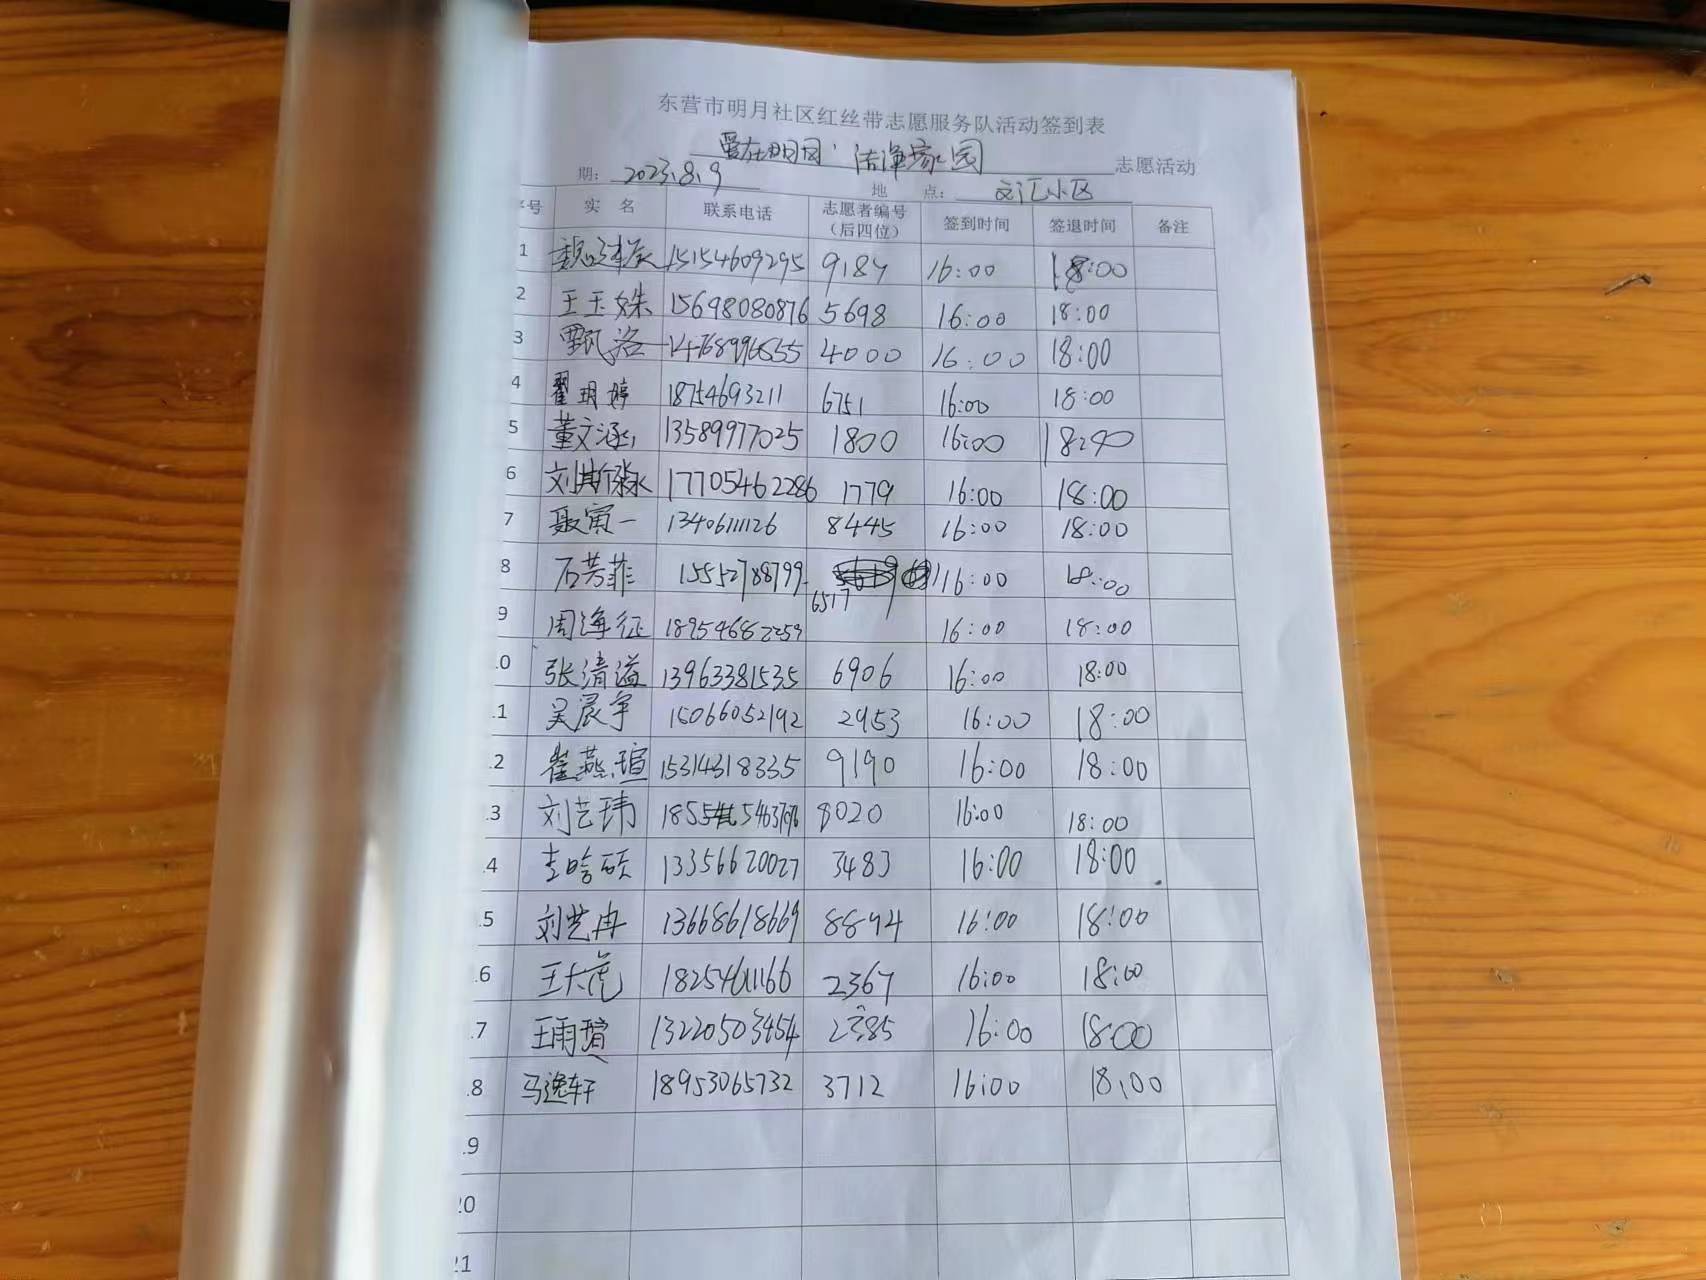 东营市明月社区红丝带志愿服务队活动签到表
爱在明月·洁净家园 志愿活动
期: 2023.8.9 地 点: 文汇小区
序号 实 名 联系电话 志愿者编号(后四位) 签到时间 签退时间 备注
1 15154609295 9184 16:00 18:00
2 王玉姝 15698080876 5698 16:00 18:00
3 甄洛 4000 16:00 18:00
4 翟玥婷 18754693211 6751 16:00 18:00
5 董文涵 13589977025 1800 16:00 18:00
6 17705462286 1779 16:00 18:00
7 聂寅一 13406111126 8445 16:00 18:00
8 石芳菲 15552788799 6517 16:00 18:00
9 周海征 18954682259 16:00 18:00
.0 张清溢 13963381535 6906 16:00 18:00
.1 吴宸宇 15066052192 2953 16:00 18:00
.2 崔燕瑄 15314318335 9190 16:00 18:00
.3 刘艺玮 8020 16:00 18:00
.4 李晗硕 13356620027 3483 16:00 18:00
.5 刘艺冉 13668618669 8894 16:00 18:00
.6 王大虎 18254611166 2367 16:00 18:00
.7 王雨瑄 13220503454 2385 16:00 18:00
.8 马逸轩 18953065732 3712 16:00 18:00
.9
20
21